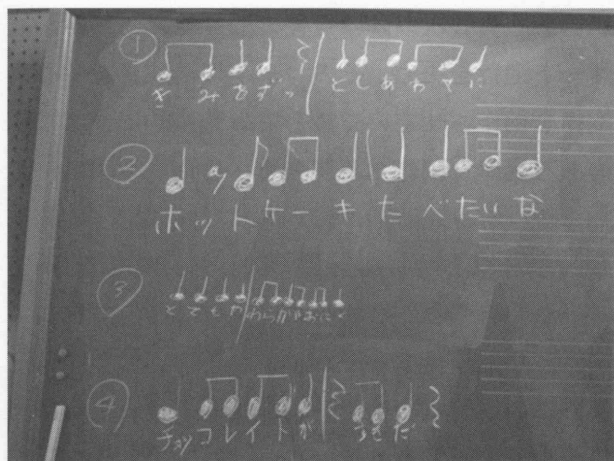 ① きみをずっとしあわせに
② ホットケーキたべたいな
③ とてもかわらかやおにく
④ チョッコレイトがすきだ